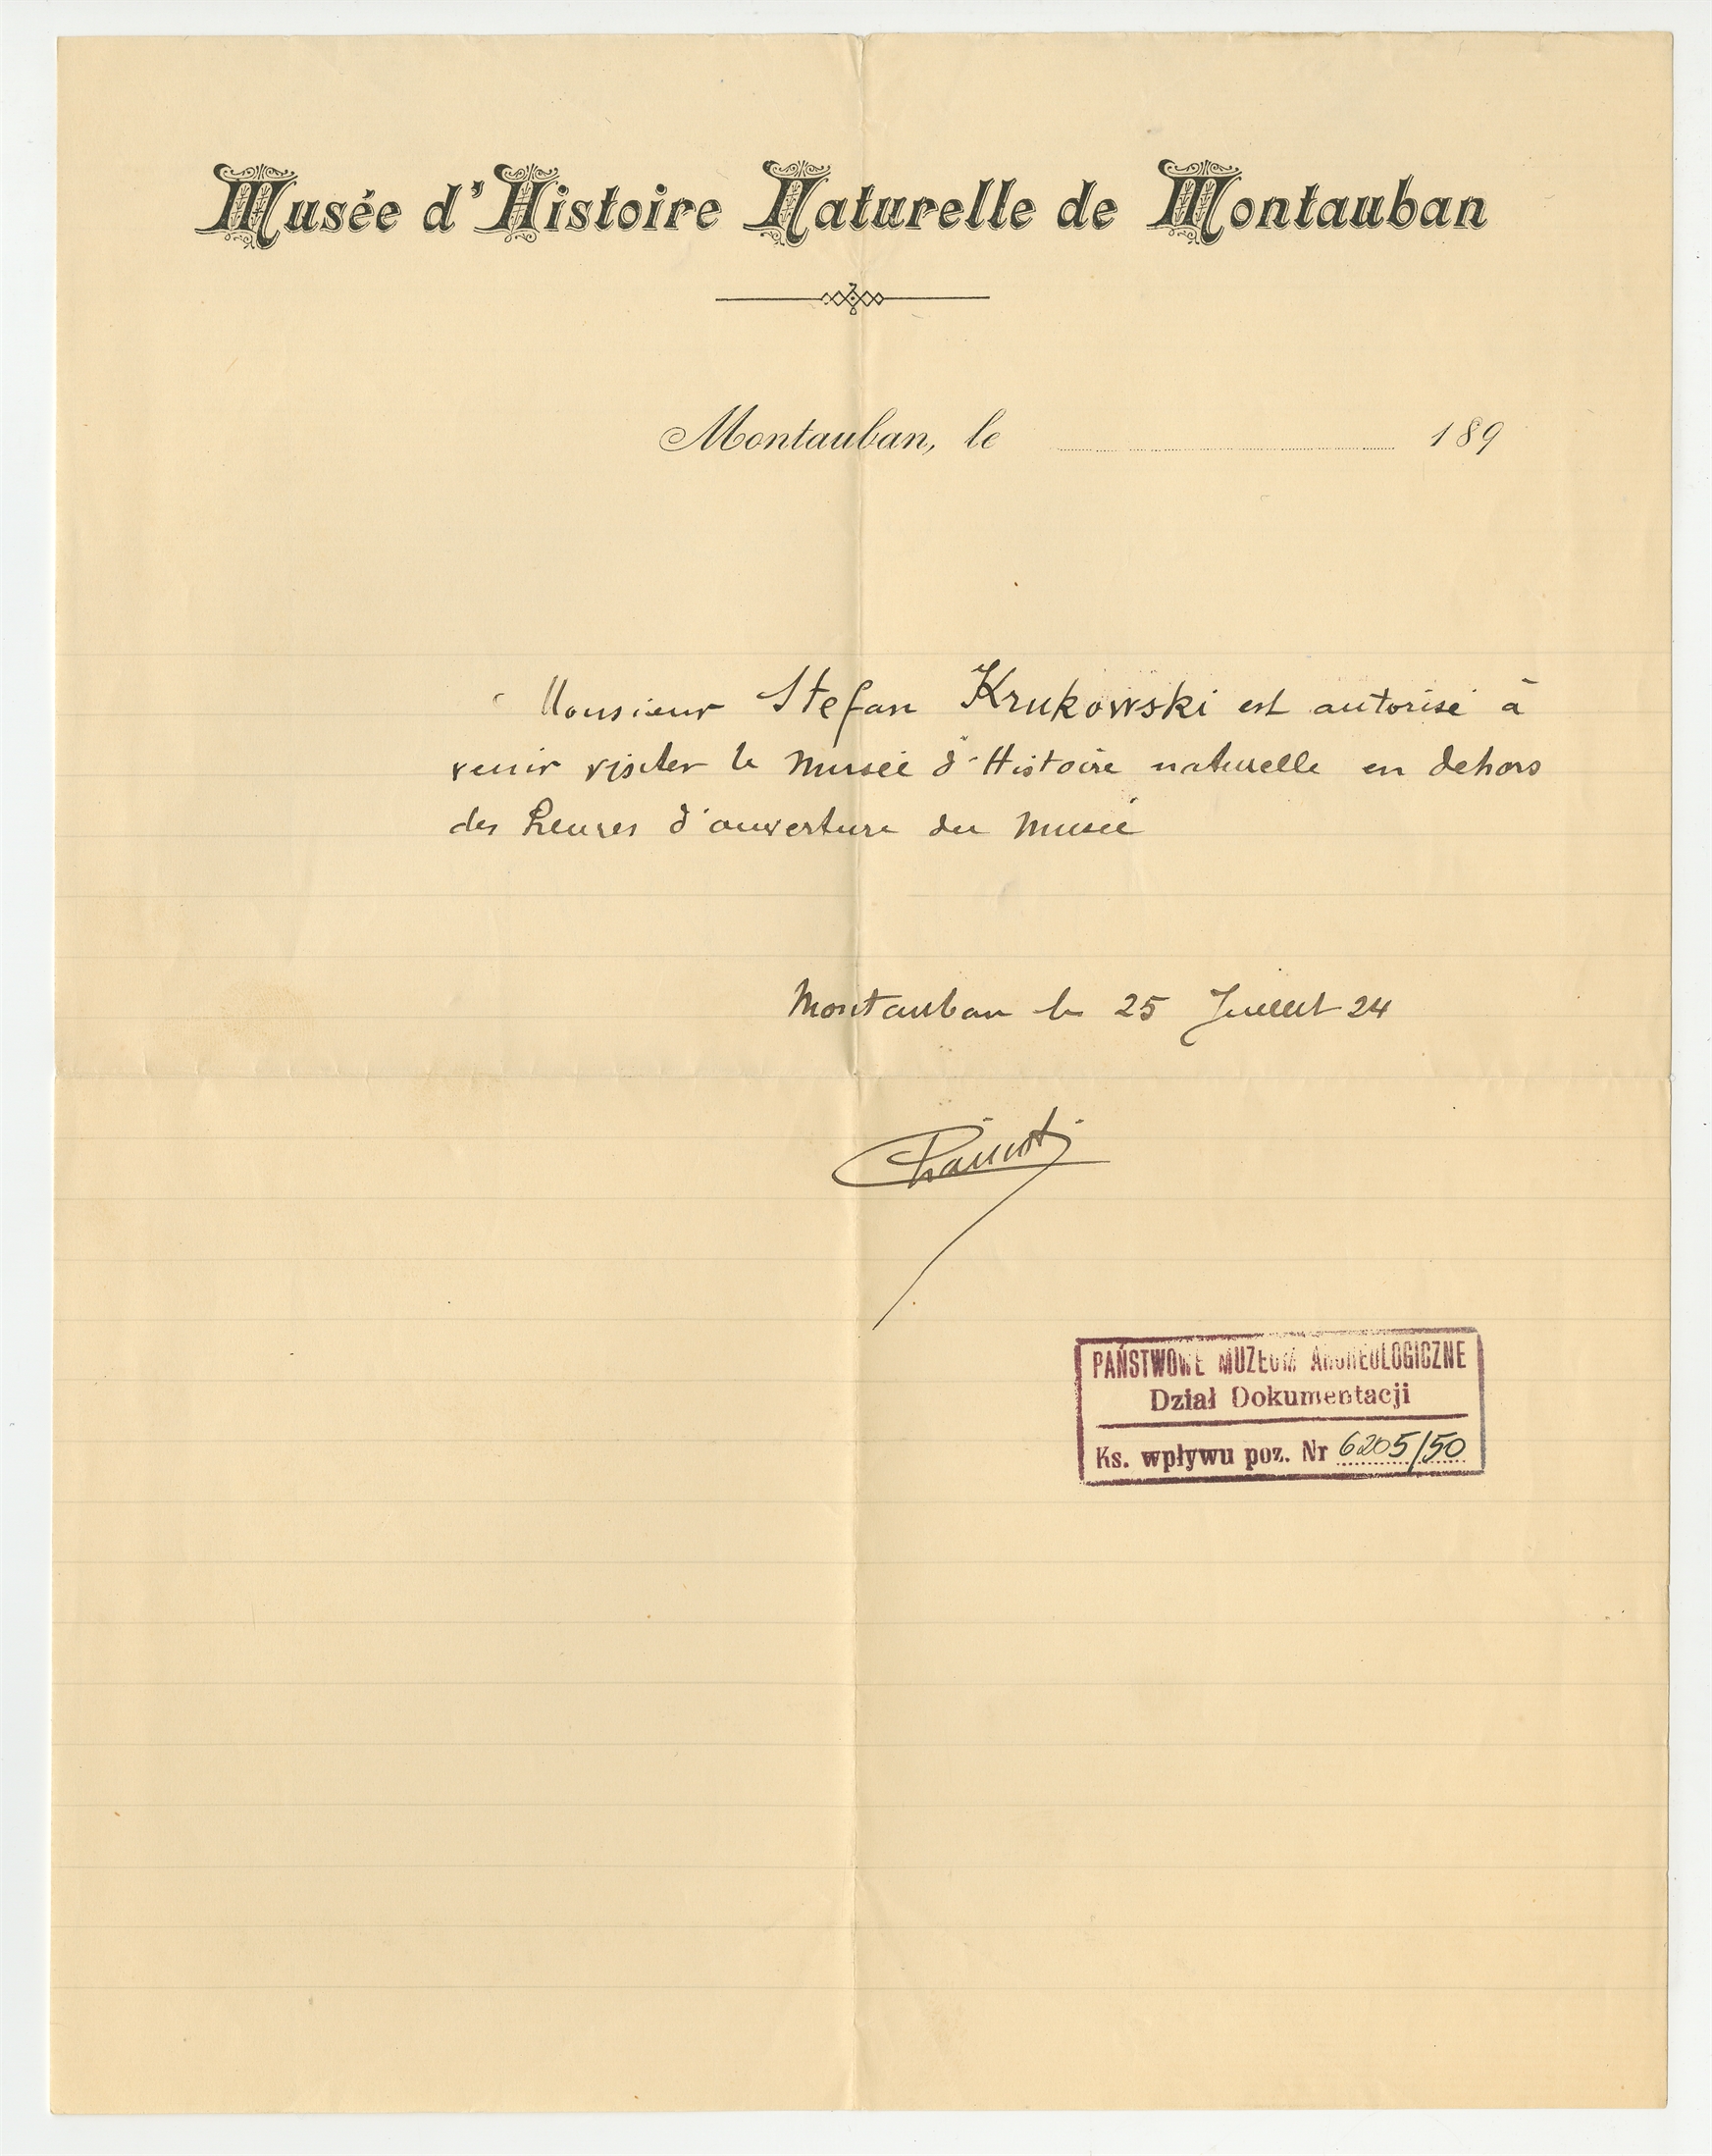 Musée d'Histoire Naturelle de Montauban
Montauban, le 189
Monsieur Stefan Krukowski est autorisé à
venir visiter le Musée d'Histoire naturelle en dehors
des heures d'ouverture du Musée
Montauban le 25 Juillet 24
PAŃSTWOWE MUZEUM ARCHEOLOGICZNE
Dział Dokumentacji
Ks. wpływu poz. Nr 6205/50